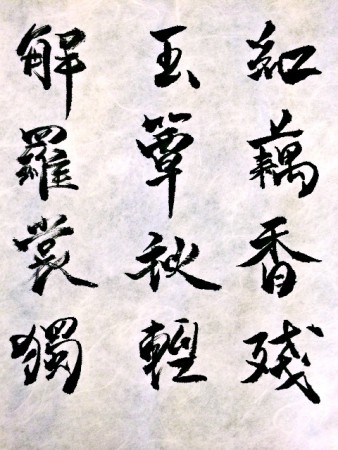 紅藕香殘
玉簟秋輕
解羅裳獨